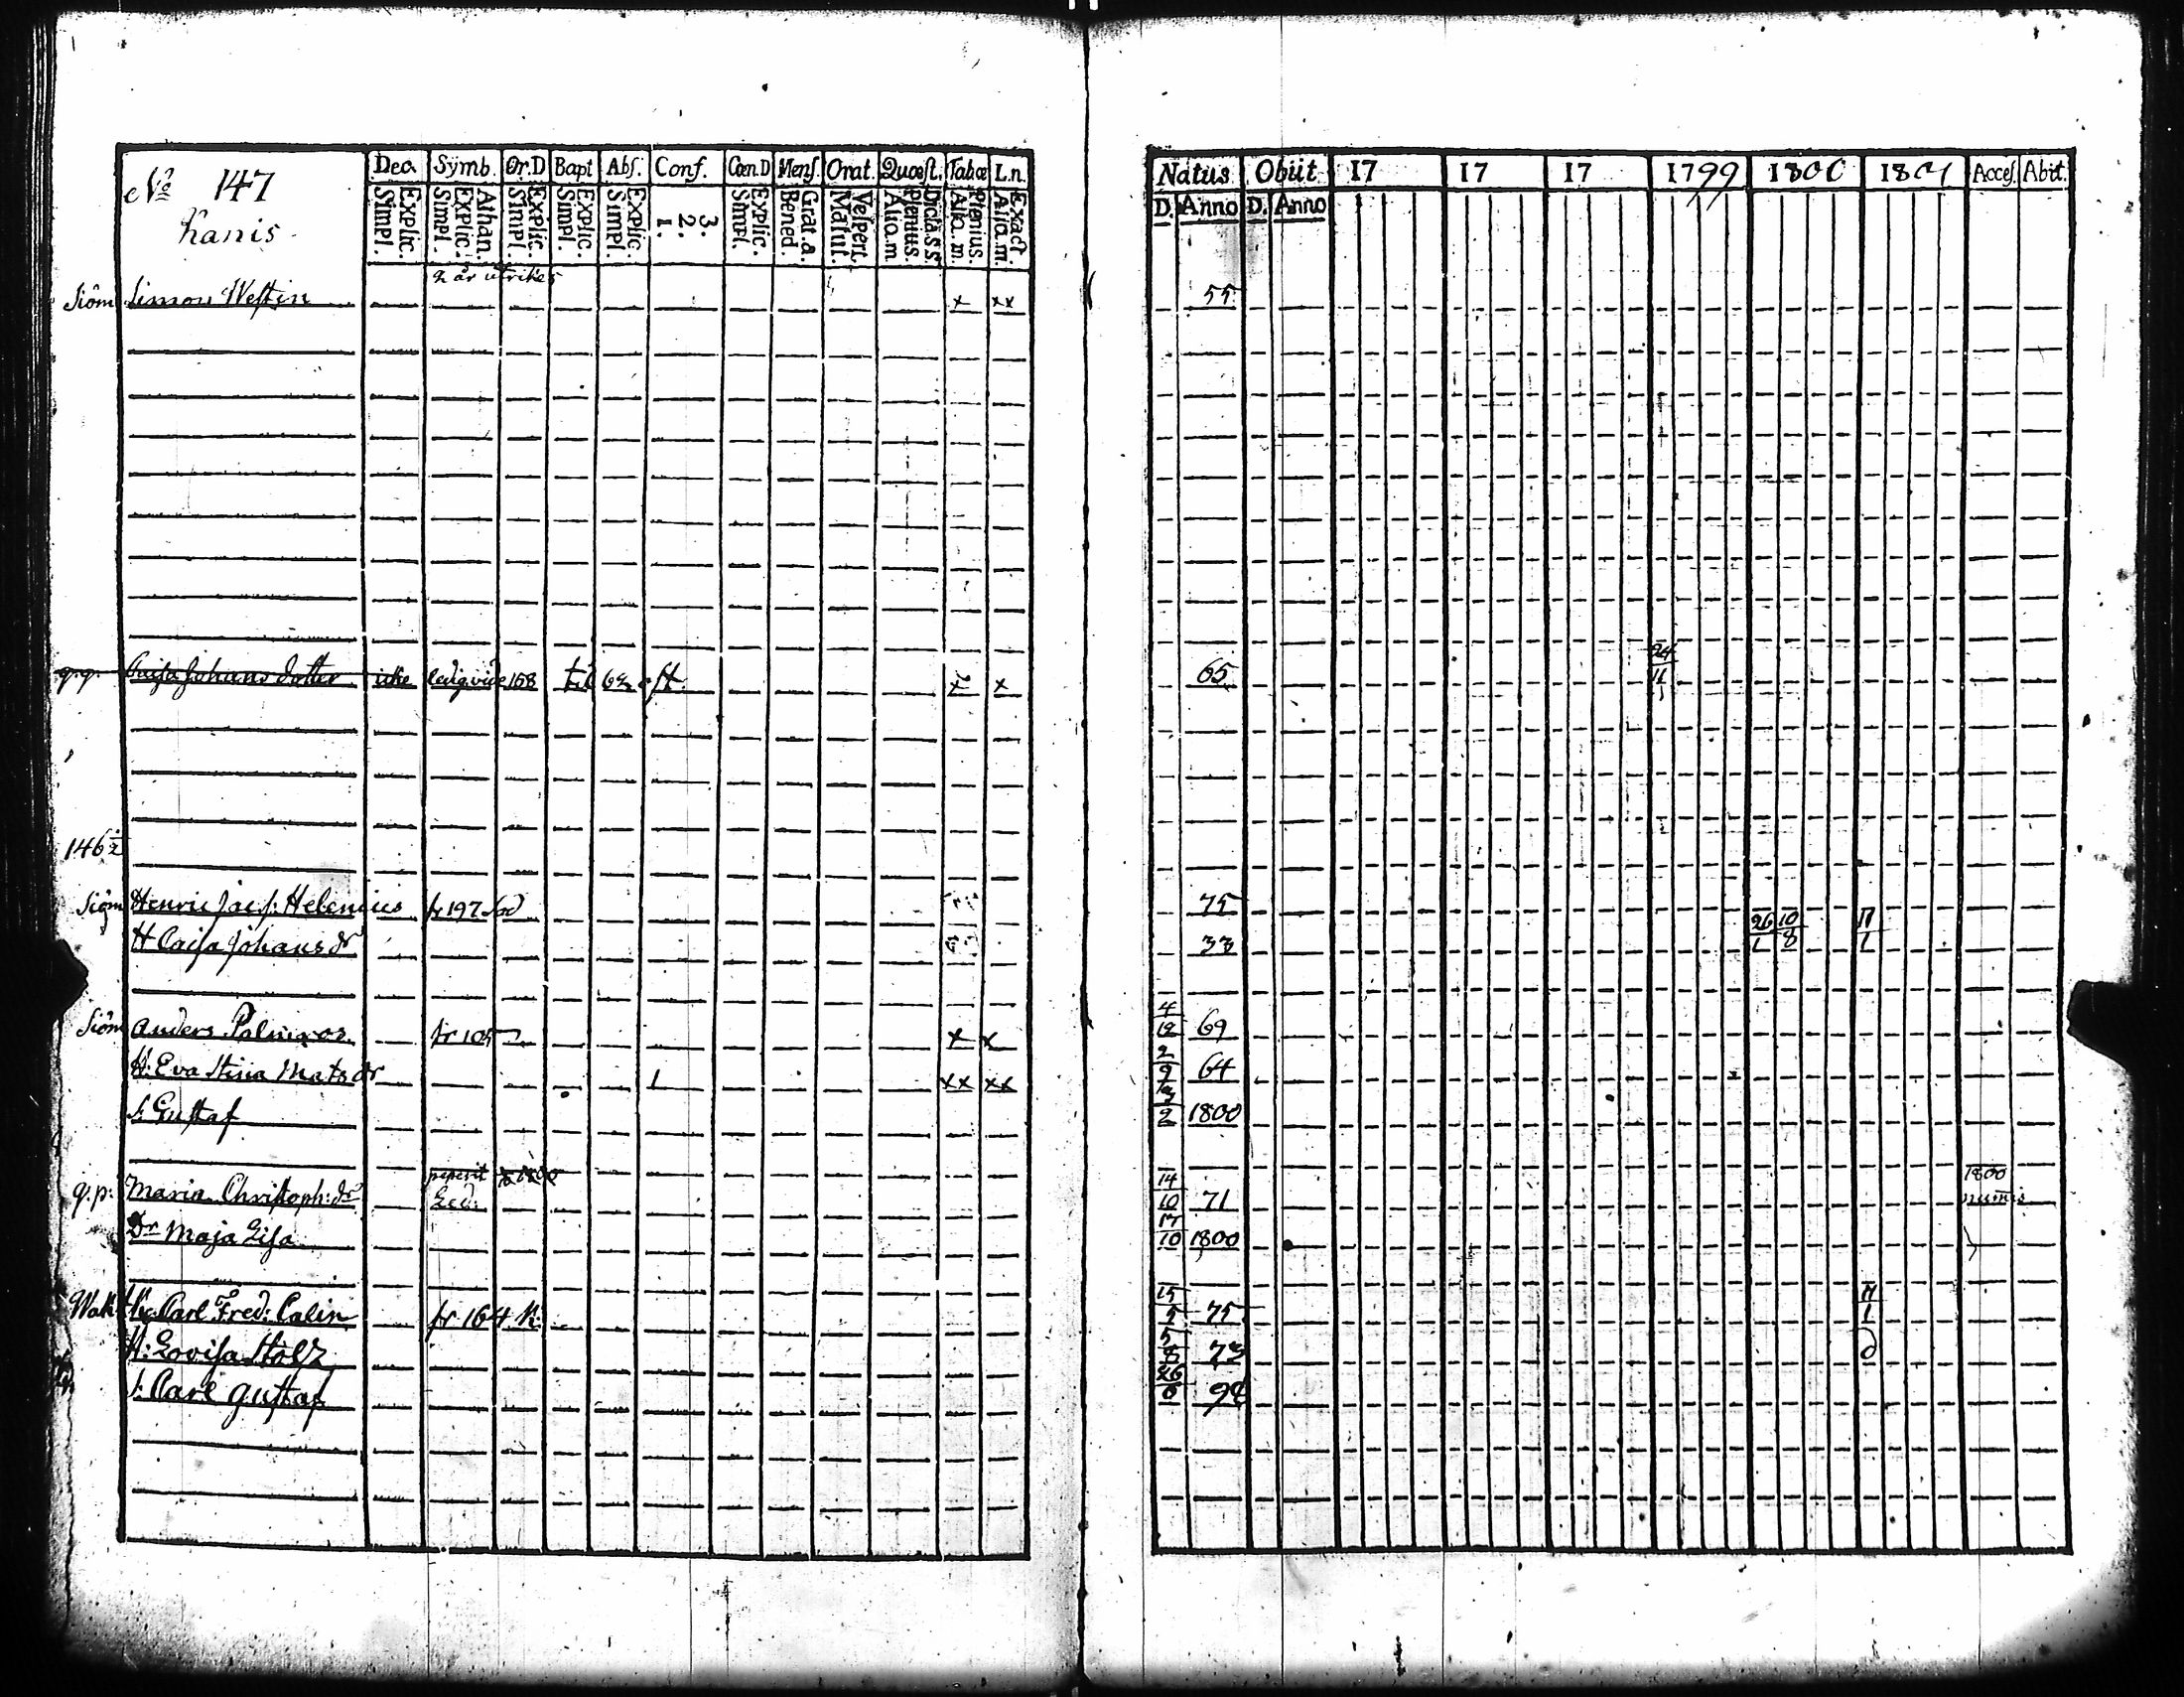 No 147 Dea. Symb. Or.D Bapt Abs. Conf. Cœn.D Mens. Orat. Quæst. Tabœ L.n.
Kanis
Simpl. Explic. Simpl. Explic. Athan. Simpl. Explic. Simpl. Explic. Simpl. Explic. 1. 2. 3. Simpl. Explic. Bened. Grat.a. Matut. Vespert. Alio.m. Plenius. Dicta.s.s. Alia.m. Plenius. Alia.m. Exact.
2 år utrikes
Siöm Simon Westin x xx
q.p. Caisa Johans dotter icke ledig vide 158 til x x
146½
Siöm Henric Jacs: Helenius fr 197
H Caisa Johans dr
Siöm Anders fr 105 x x
H: Eva Stina Mats dr 1 xx xx
s: Gustaf
peperit
q.p: Maria Christoph: dr
Dr Maja Lisa
Carl Fred: Calin fr 164
H: Lovisa Stolz
s: Carl Gustaf
Natus Obiit 17 17 17 1799 1800 1801 Acces. Abiit.
D. Anno D. Anno
55
65 24/11
75
33 26/1 10/8 11/1
4/12 69
2/9 64
2 1800
14/10 71 1800
17/10 1800
15/5 75 11/1
5/8 73
26/6 98